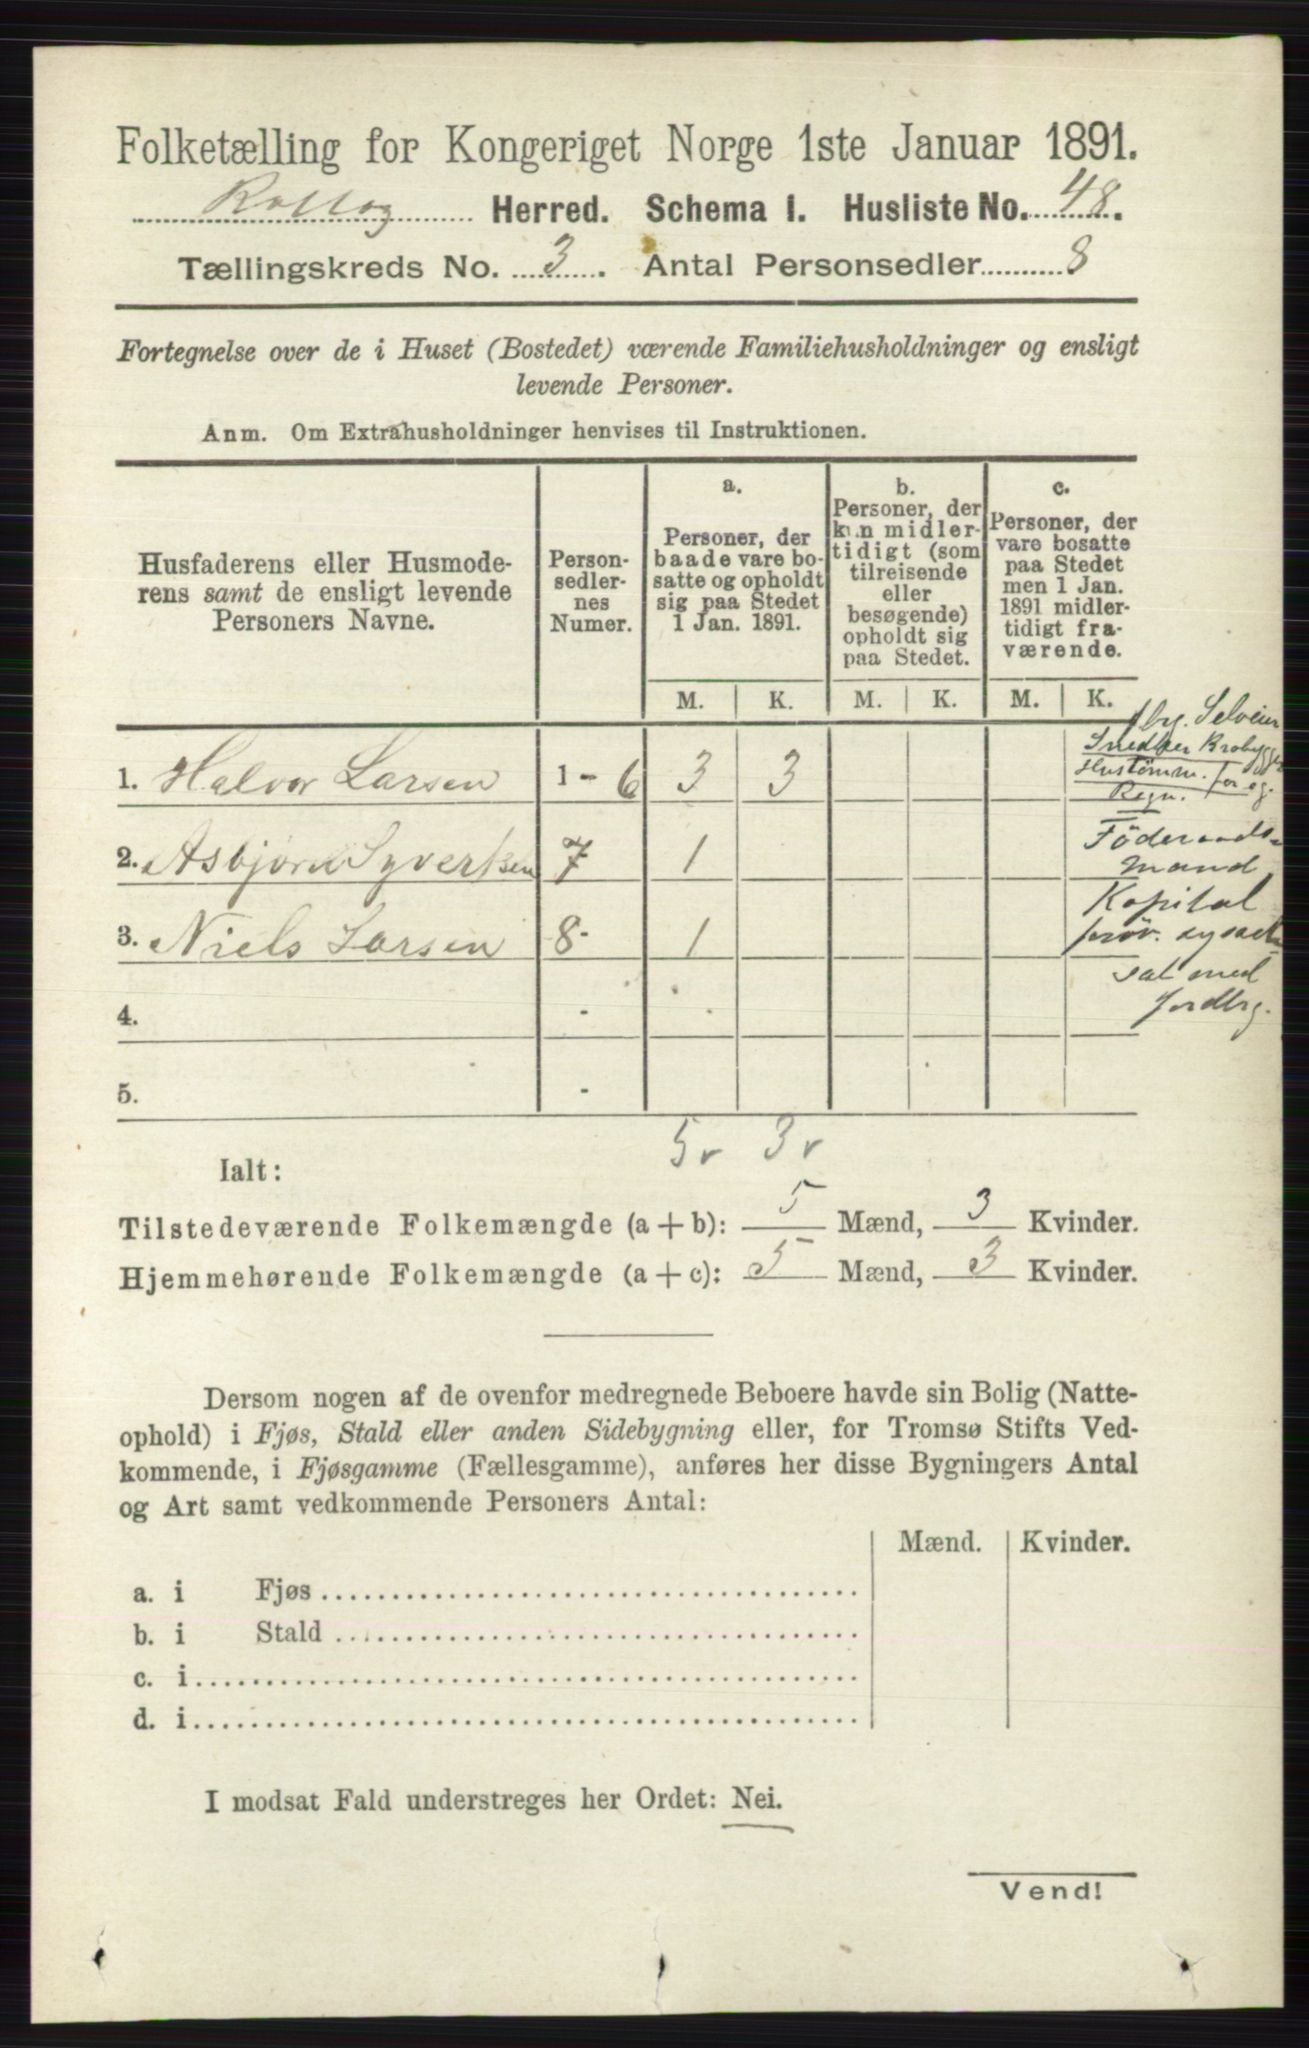 Folketælling for Kongeriget Norge 1ste Januar 1891.
Rollag Herred. Schema I. Husliste No. 48.
Tællingskreds No. 3. Antal Personsedler 8
Fortegnelse over de i Huset (Bostedet) værende Familiehusholdninger og ensligt
levende Personer.
Anm. Om Extrahusholdninger henvises til Instruktionen.
Husfaderens eller Husmode-
rens samt de ensligt levende
Personers Navne.
Person-
sedler-
nes
Numer.
a.
Personer, der
baade vare bo-
satte og opholdt
sig paa Stedet
1 Jan. 1891.
b.
Personer, der
kun midler-
tidigt (som
tilreisende
eller
besøgende)
opholdt sig
paa Stedet.
c.
Personer, der
vare bosatte
paa Stedet
men 1 Jan.
1891 midler-
tidigt fra-
værende.
M. K. M. K. M. K.
by. Selveier
Snedker Brobygger
Hustømm. for eg.
Regn.
1. Halvor Larsen 1 - 6 3 3
Föderaads-
mand
2. Asbjörn Syversen 7 1
Kapital
3. Niels Larsen 8 - 1
sat med
Jordbrg.
4. -
5. -
5 v 3 v
Ialt:
Tilstedeværende Folkemængde (a + b): 5 Mænd, 3 Kvinder.
Hjemmehørende Folkemængde (a + c): 5 Mænd, 3 Kvinder.
Dersom nogen af de ovenfor medregnede Beboere havde sin Bolig (Natte-
ophold) i Fjøs, Stald eller anden Sidebygning eller, for Tromsø Stifts Ved-
kommende, i Fjøsgamme (Fællesgamme), anføres her disse Bygningers Antal
og Art samt vedkommende Personers Antal:
Mænd. Kvinder.
a. i Fjøs
b. i Stald
c. i
d. i
I modsat Fald understreges her Ordet: Nei.
Vend!